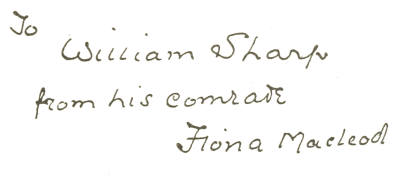 To
William Sharp
from his comrade
Fiona Macleod